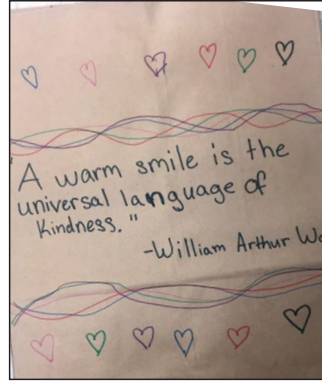 "A warm smile is the
universal language of
kindness."
-William Arthur